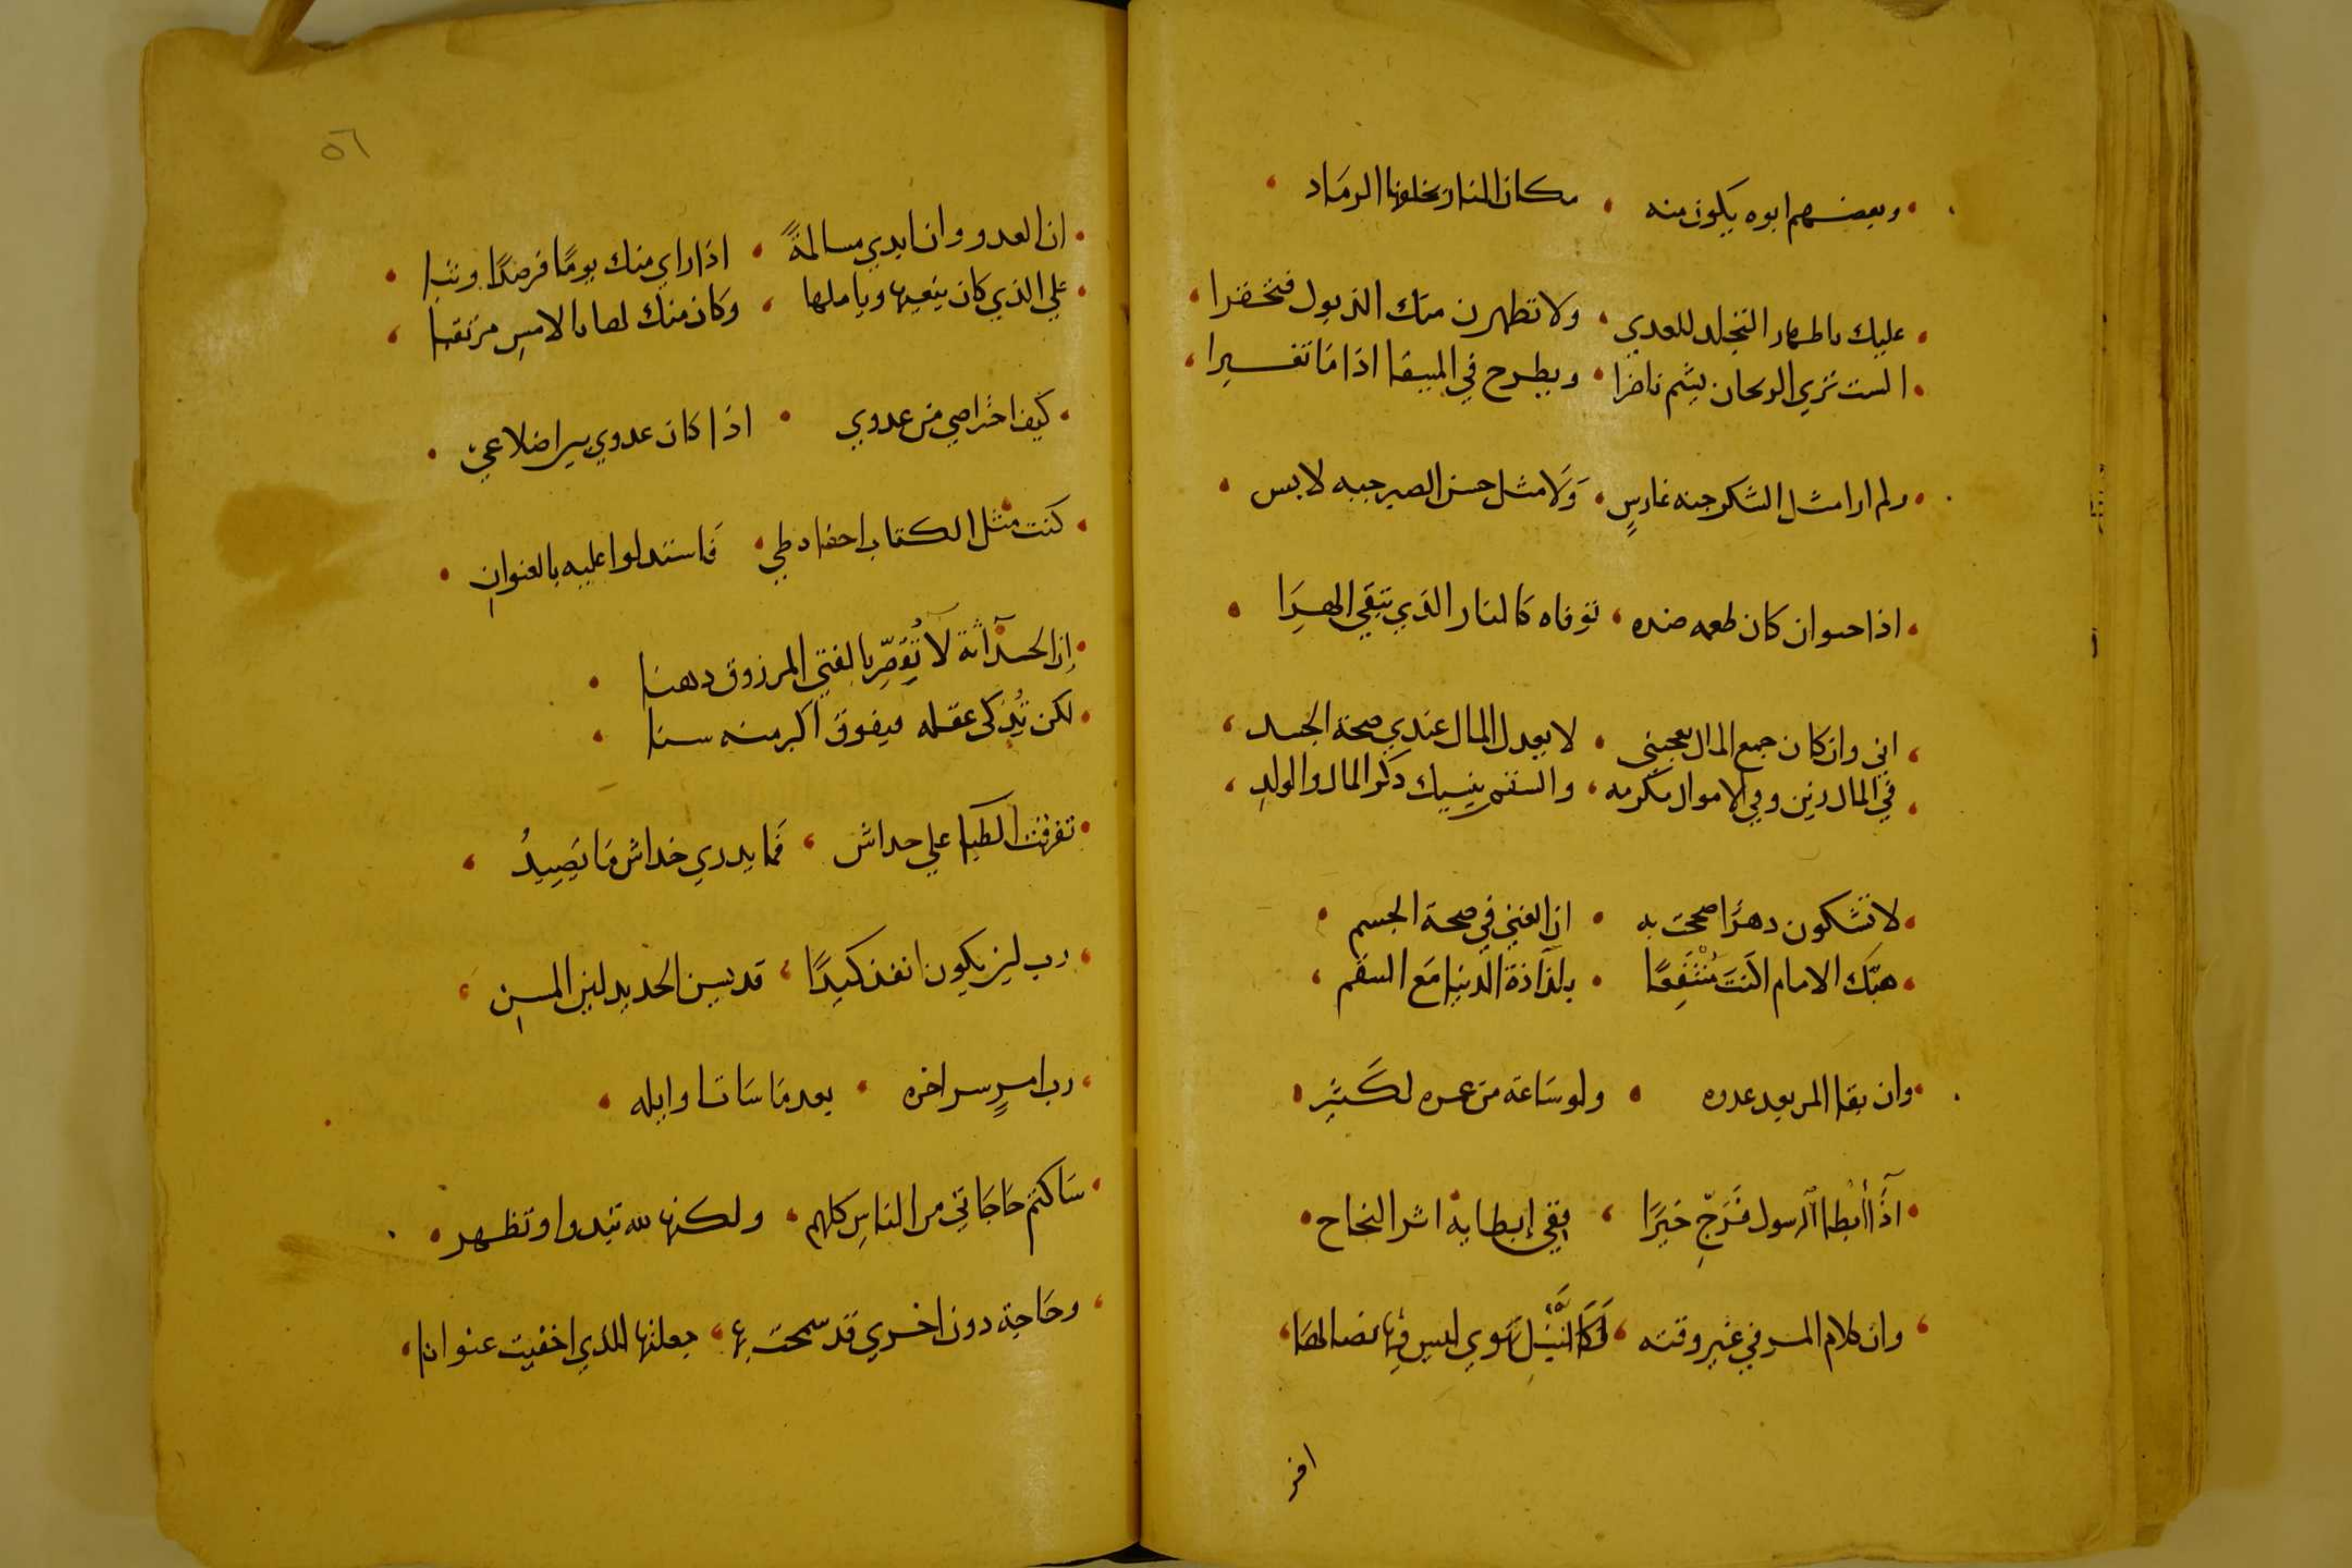 وبعضهم ابوه يكون منه • مكان النار يخلفها الرماد
عليك باظهار التجلد للعدي • ولا تظهرن منك الذبول فتحقرا
الست تري الريحان يشم ناضرا • ويطرح في الميضا اذا ما تغيرا
ولم ار امثل الشكر جنه غارسٍ • وَلا مثل حسن الصبر جبه لابس
اذا حيوان كان طعمه ضده • توقاه كالنار الذي تتقي الهرا
اني وان كان جمع المال يعجبني • لا يعدل المال عندي صحة الجسد
في المال زين وفي الاموال مكرمه • والسقم ينسيك ذكر المال والولدِ
لا تشكون دهرًا صححت به • ان الغني في صحة الجسم
هبك الامام الَنتَ مُنْتَفِعًا • بلذاذة الدنيا مَع السقم
وان بقا المر بعد عدوه • ولو ساعة من عمره لكَثيِر
اذَا أَبْطا الرسول فَرَجِّ خَيرًا • ففي إبطايه اثر النجاح
وان كلام المر في غير وقته • لَكَالنَّبْل تهوي ليس فيها نصالها
افر
٥٦
ان العدو وان ابدي مسالمةً • اذا راي منك يومًا فرصةً وثبا
علي الذي كان ينعيها وياملها • وكان منك لها بالامسِ مرتقبا
كيف احتراصي من عدوي • اذا كان عدوي بير اضلاعي
كنت مثل الكتاب اخفاه طي • فاستدلوا عليه بالعنوانِ
إن الحداثة لا تُقَصِّر بالفتي المرزوق دهنا
لكن تُذكي عقله ويفوق اكبر منه سنا
تفرقت الظبا علي خداش • فما يدري خداش مَا يَصِيدُ
رب لين يكون انفذ كيدًا • قد يسن الحديد لين المسنِ
رب امرٍ سر اخره • بعد ما سات اوايله
ساكتم حاجاتي من الناسِ كلهم • ولكنها لله تبدوا وتظهر
وحاجة دون اخري قد سمحت بها • جعلتها للذي اخفيت عنوانا